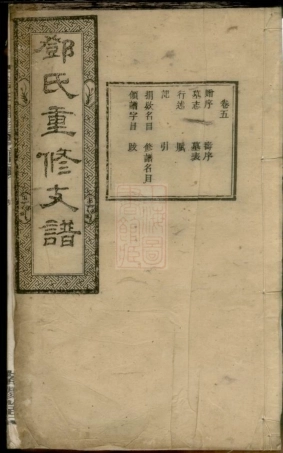 鄧氏重修支譜
卷五
贈序 壽序
墓志 墓表
行述 賦
記 引
捐款名目 修譜名目
領譜字目 跋